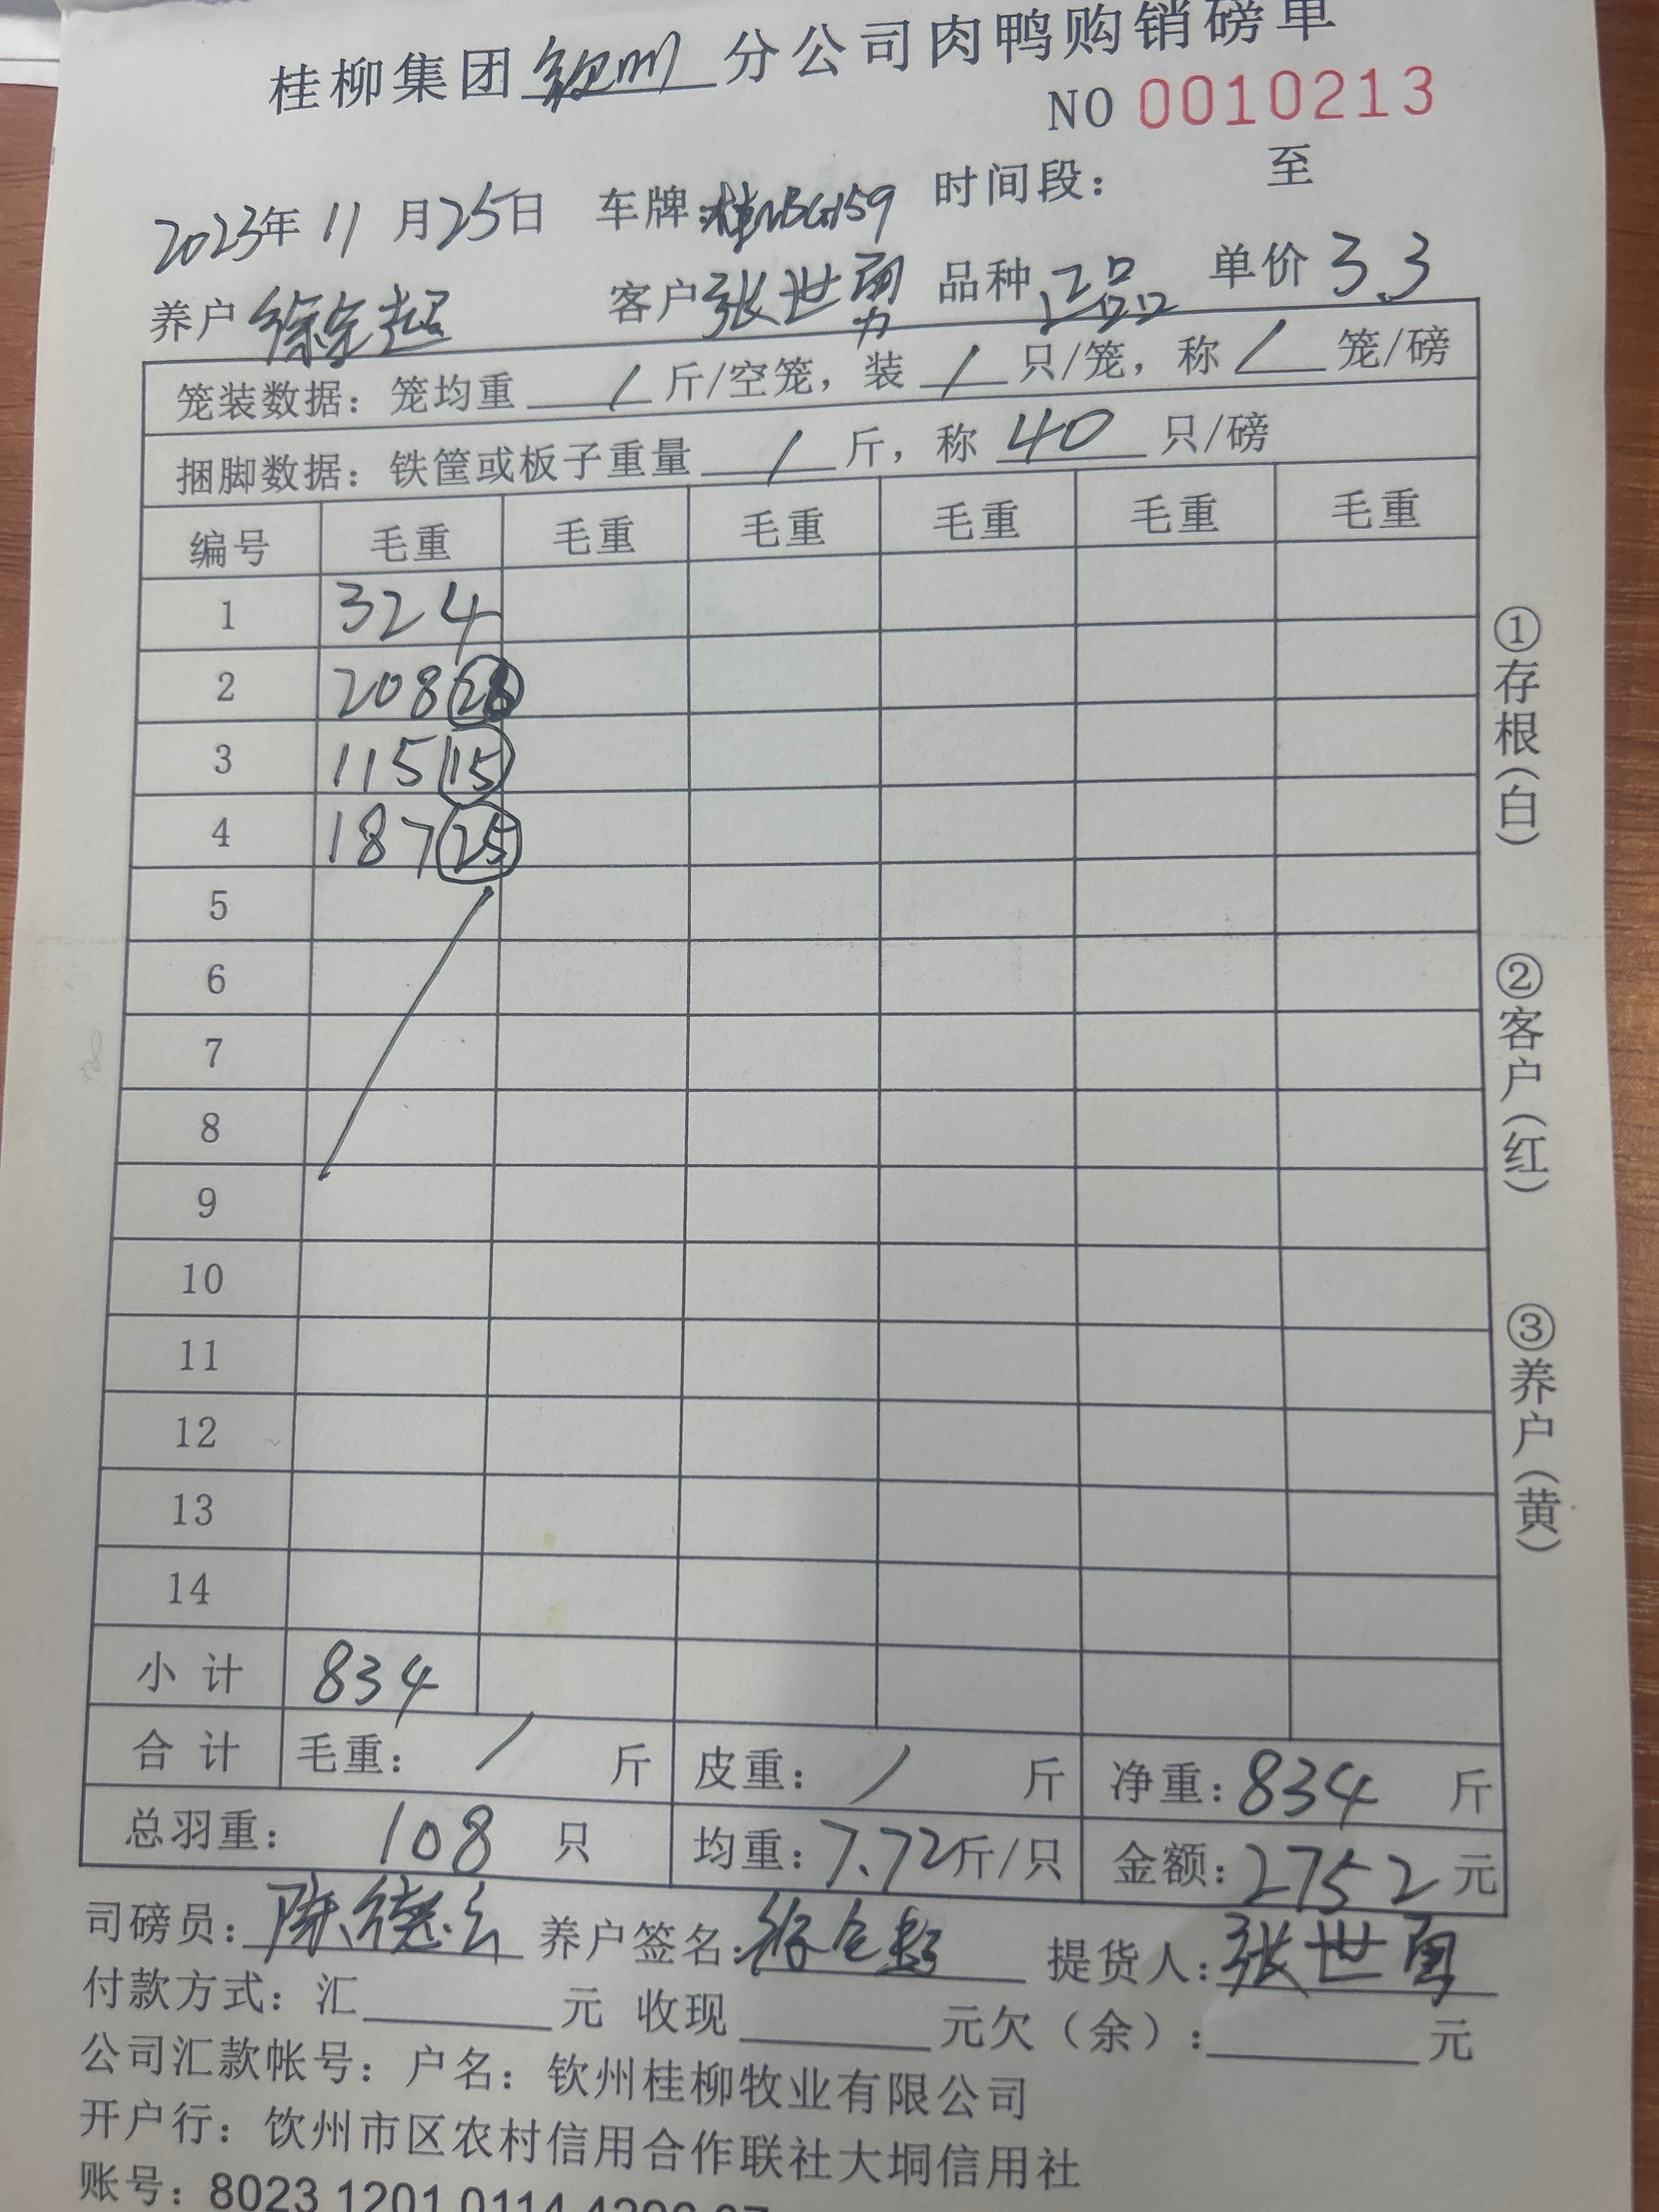 桂柳集团钦州分公司肉鸭购销磅单
NO 0010213
2023年 11 月25日 车牌: 时间段: 至
养户 客户张世勇 品种正品 单价3.3
笼装数据: 笼均重 / 斤/空笼, 装 / 只/笼, 称 / 笼/磅
捆脚数据: 铁筐或板子重量 / 斤, 称 40 只/磅
编号 毛重 毛重 毛重 毛重 毛重 毛重
1 324
2 208 28
3 115 15
4 187 25
5
6
7
8
9
10
11
12
13
14
小计 834
合计 毛重: / 斤 皮重: / 斤 净重: 834 斤
总羽重: 108 只 均重: 7.72斤/只 金额: 2752元
司磅员: 陈德云 养户签名: 提货人: 张世勇
付款方式: 汇 元 收现 元欠(余): 元
公司汇款帐号: 户名: 钦州桂柳牧业有限公司
开户行: 钦州市区农村信用合作联社大垌信用社
账号: 8023 1201 0114
①存根(白)
②客户(红)
③养户(黄)